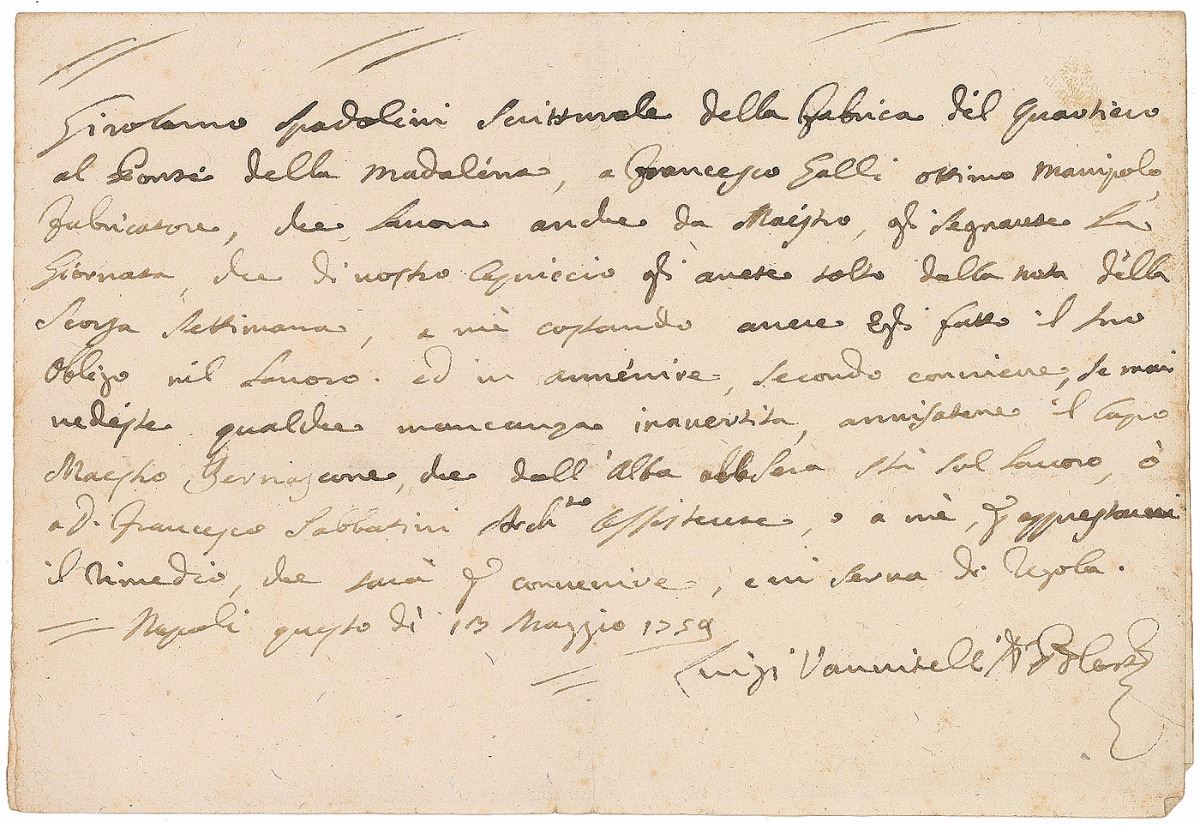 Girolamo Spadolini Scritturale della Fabrica del Quartiero
al Ponte della Madalena, a Francesco Galli ottimo Manipolo,
Fabricatore, che Lavora anche da Maestro, gli Segnarete La
Giornata, che di vostro Capriccio gli avete tolto dalla nota della
Scorsa Settimana, a mè costando avere Egli fatto il suo
Obligo nel Lavoro. ed in avvenire, secondo conviene, se mai
vedeste qualche mancanza inavertita, avvisatene il Capo
Maestro Bernascone, che dall'Alba alla Sera stà sul Lavoro, ò
a D. Francesco Sabbatini Arch.to Assistente, o a mè,
il Rimedio, che sarà convenire, e vi serva di Regola.
Napoli questo dì 13 Maggio 1759
Luigi Vanvitelli